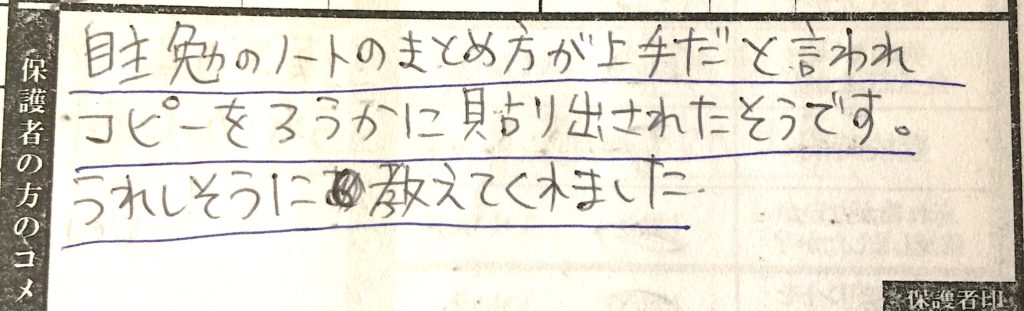 保護者の方のコメ
自主勉のノートのまとめ方が上手だと言われ
コピーをろうかに貼り出されたそうです。
うれしそうに教えてくれました
保護者印